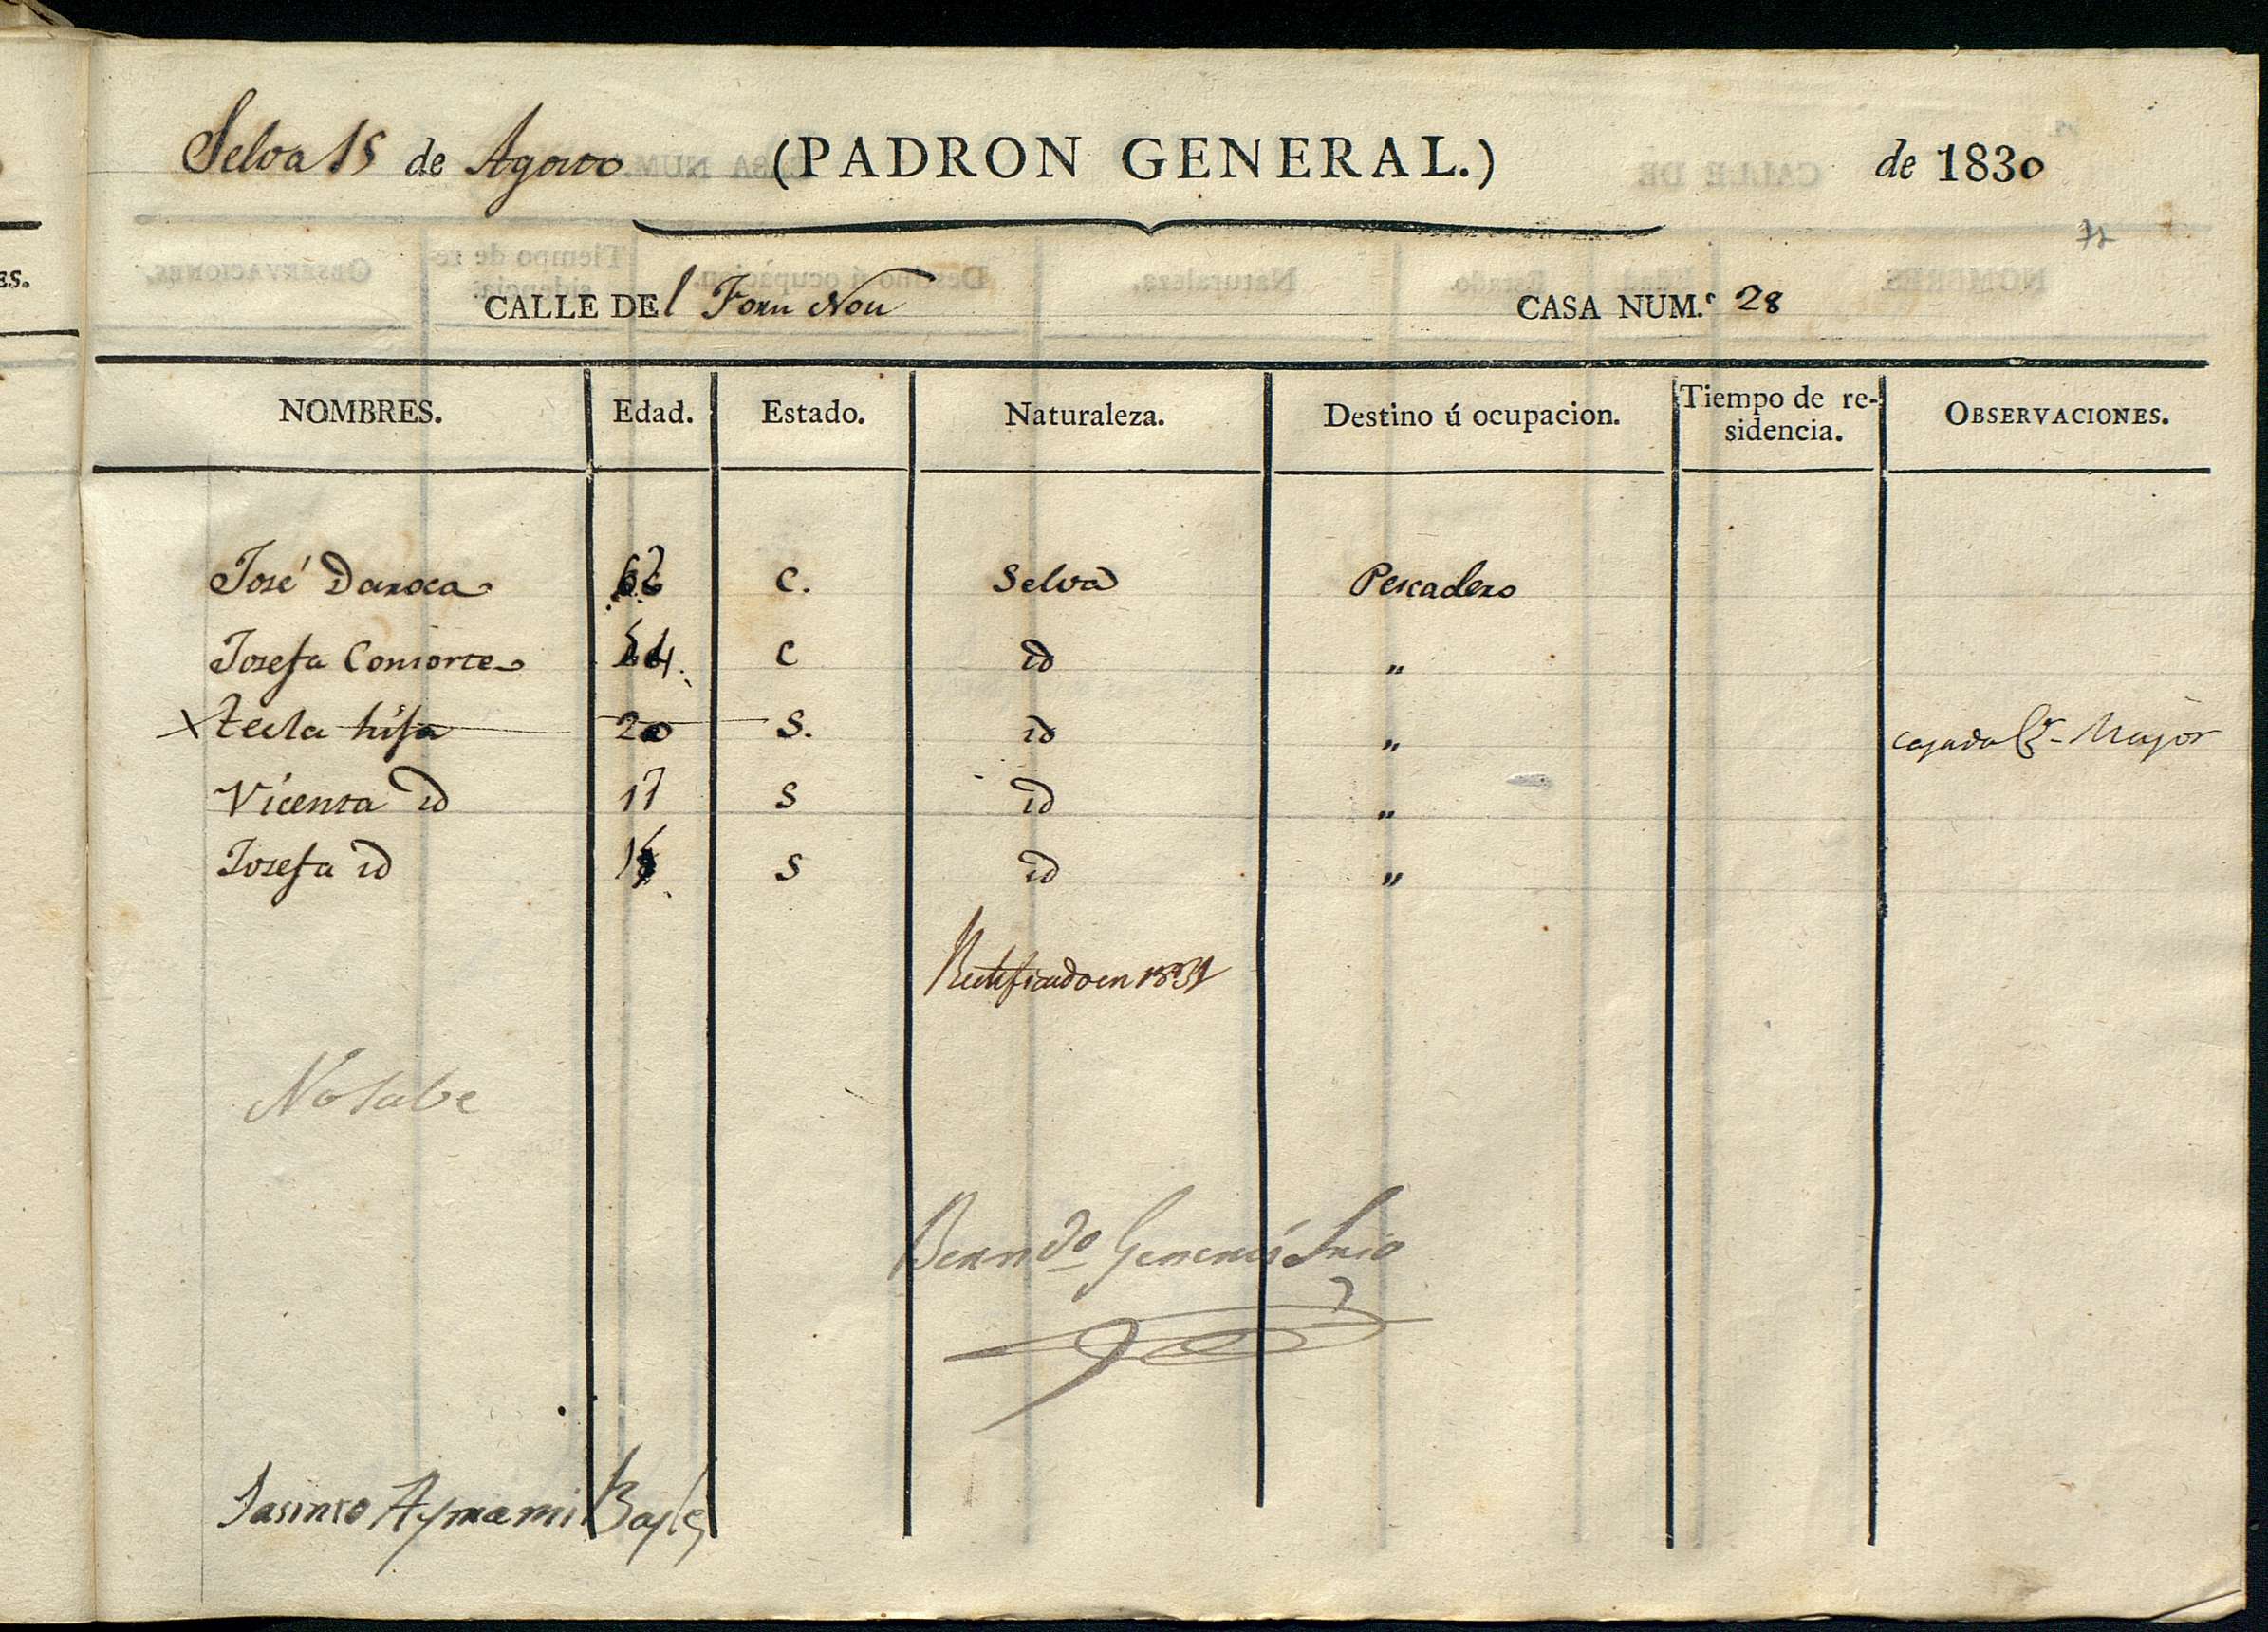 Selva 15 de Agosto (PADRON GENERAL.) de 1830
CALLE DEl Forn Nou CASA NUM.º 28
NOMBRES. Edad. Estado. Naturaleza. Destino ú ocupacion. Tiempo de re-sidencia. OBSERVACIONES.
José Daroca C. Selva Pescadero
Josefa Consorte 54. C id „
X Tecla hija 20 S. id „ casada Cr. Major
Vicenta id 17 S id „
Josefa id S id „
Rectificado en 1831
No sabe
Berndo Srio
Jasinto Aymami Bayle
ES.